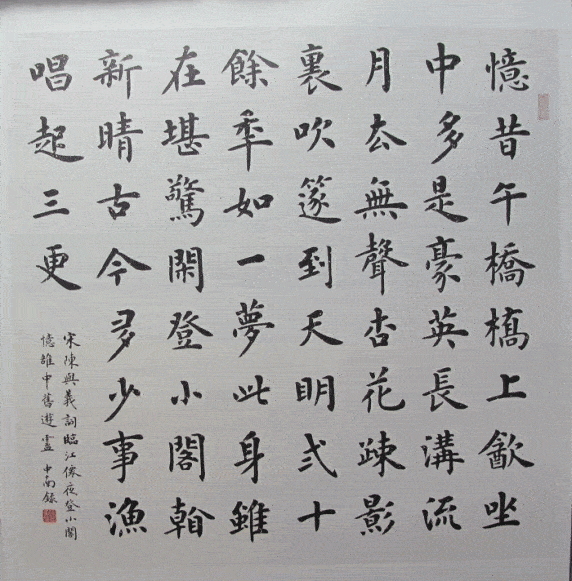 憶昔午橋橋上㱃坐
中多是豪英長溝流
月去無聲杏花疎影
裏吹篴到天明弍十
餘秊如一夢此身雖
在堪驚閑登小閣看
新晴古今多少事漁
唱起三更
宋陳與義詞臨江僊夜登小閣
憶雒中舊遊 中南錄